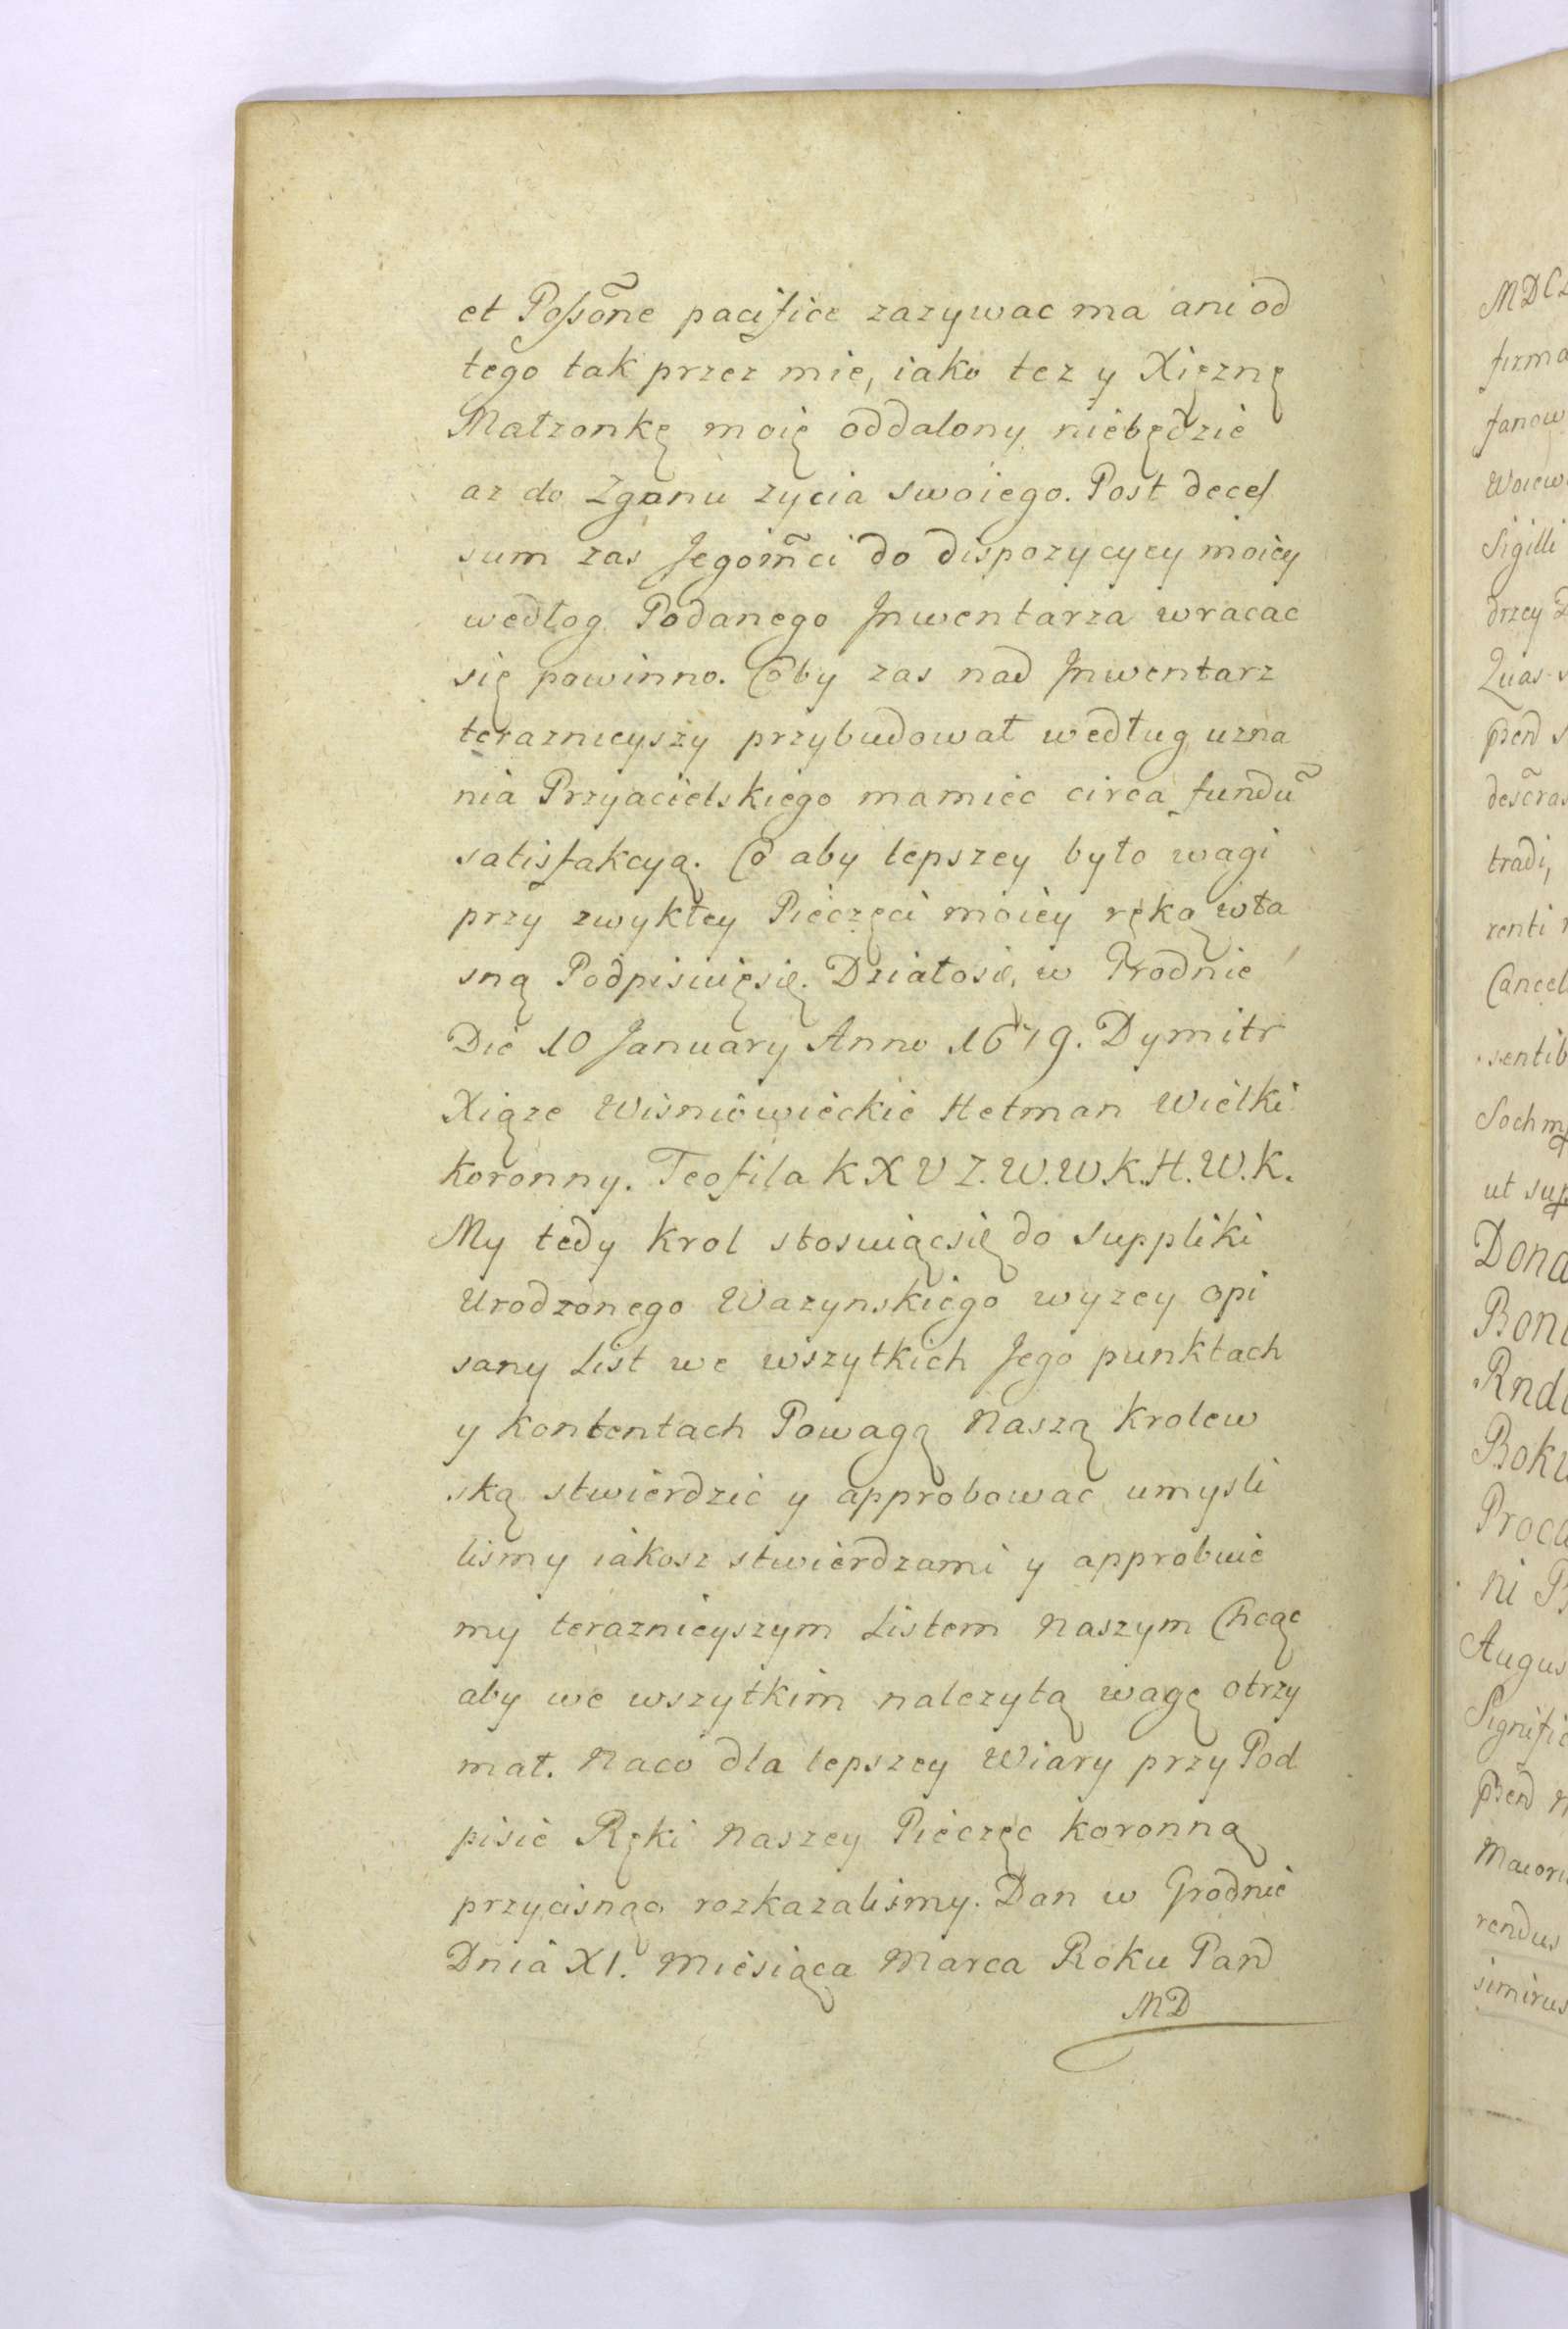 et Poſsõne pacifice zazywac ma ani od
tego tak przez mie, iako tez y Xięznę
Matzonkę moię oddalony niebędzie
az do Zgonu zycia swoiego. Post deceſ
sum zas Jegom̃ci do dispozycyey moiey
wedłog Podanego Jnwentarza wracac
się powinno. Coby zas nad Jnwentarz
teraznieyszy przybudował według uzna
nia Przyacielskiego mamiec circa fundũ
satisfakcyą. Co aby lepszey było wagi
przy zwykłey Pieczęci moiey ręką wła
sną Podpisuięsię. Działosie, w Grodnie
Die 10 January Anno 1679. Dymitr
Xiąze Wisniowieckie Hetman Wielki
koronny. Teofila K X V Z. W. W. K. H. W. K.
My tedy Krol stosuiącsię do Suppliki
Urodzonego Wazynskiego wyzey opi
sany List we wszytkich Jego punktach
y kontentach Powagą Naszą krolew
ską stwierdzic y approbowac umysli
lismy iakosz stwierdzami y approbuie
my teraznieyszym Listem Naszym Chcąc
aby we wszytkim nalezytą wagę otrzy
mał. Naco dla lepszey Wiary przy Pod
pisie Ręki Naszey Pieczęc koronną
przycisnąc rozkazalismy. Dan w Grodnie
Dnia XI. Miesiąca Marca Roku Pand
MD
MDC
firma
fanow
Woiew
Sigilli
drzey
Quas
desc̃ras
tradi,
renti
Cancel
sentib
Sochm
ut sup
Dona
Boni
Rnd
Boku
Proc
ni
Augus
Signific
Maiori
rendus
simirus